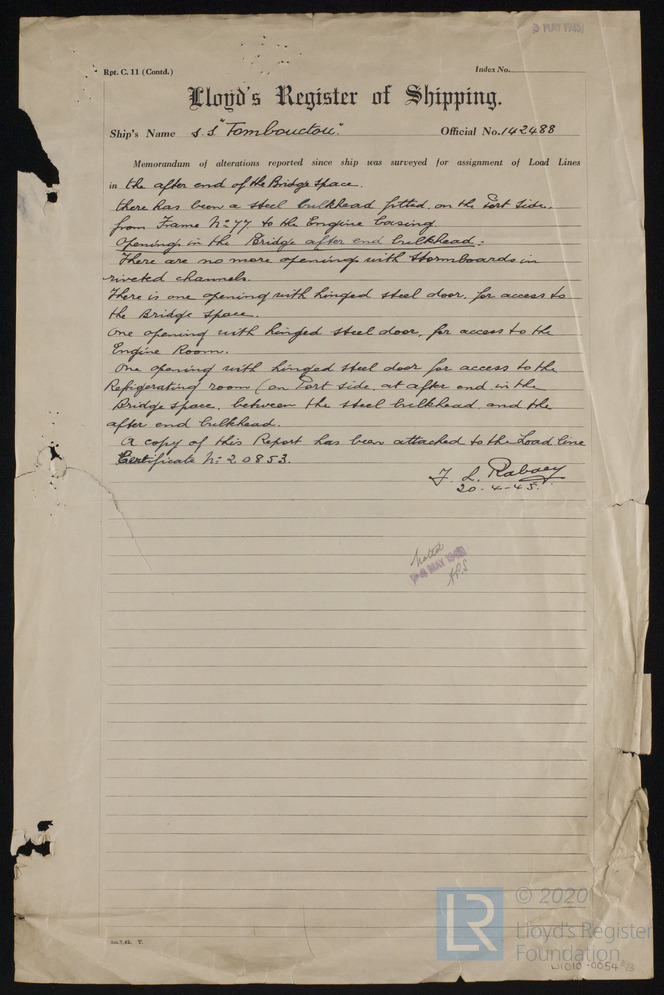 3 MAY 1945
Rpt. C. 11 (Contd.)
Index No.
Lloyd's Register of Shipping.
Ship's Name S.S "Tombouctou".
Official No. 142488
Memorandum of alterations reported since ship was surveyed for assignment of Load Lines
in the after end of the Bridge space.
There has been a steel bulkhead fitted, on the Port Side,
from Frame No 77 to the Engine Casing.
Openings in the Bridge after end bulkhead:
There are no more openings with stormboards in
riveted channels.
There is one opening with hinged steel door, for access to
the Bridge space.
One opening with hinged steel door, for access to the
Engine Room.
One opening with hinged steel door for access to the
Refrigerating room (on Port side, at after end in the
Bridge space, between the steel bulkhead and the
after end bulkhead.
A copy of this Report has been attached to the Load line
Certificate No 20853.
20-4-45.
Noted
MAY 1945
© 2020
LR
Lloyd's Register
Foundation